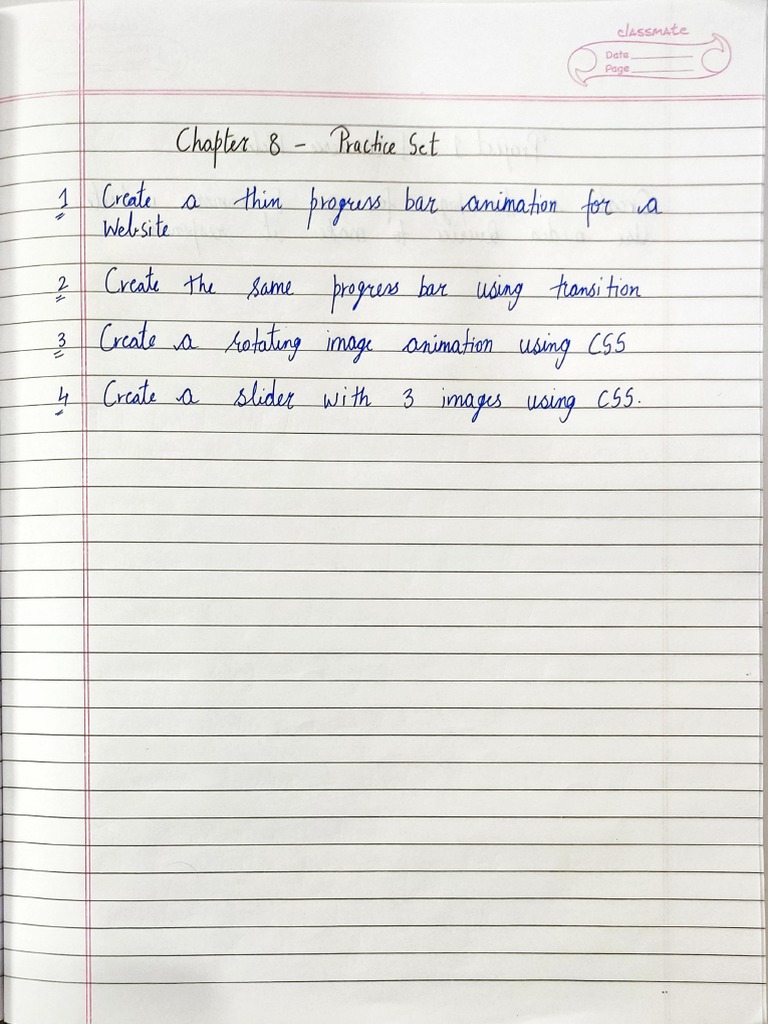 classmate
Date
Page
Chapter 8 - Practice Set
1 Create a thin progress bar animation for a
Website
2 Create the same progress bar using transition
3 Create a rotating image animation using CSS
4 Create a slider with 3 images using CSS.